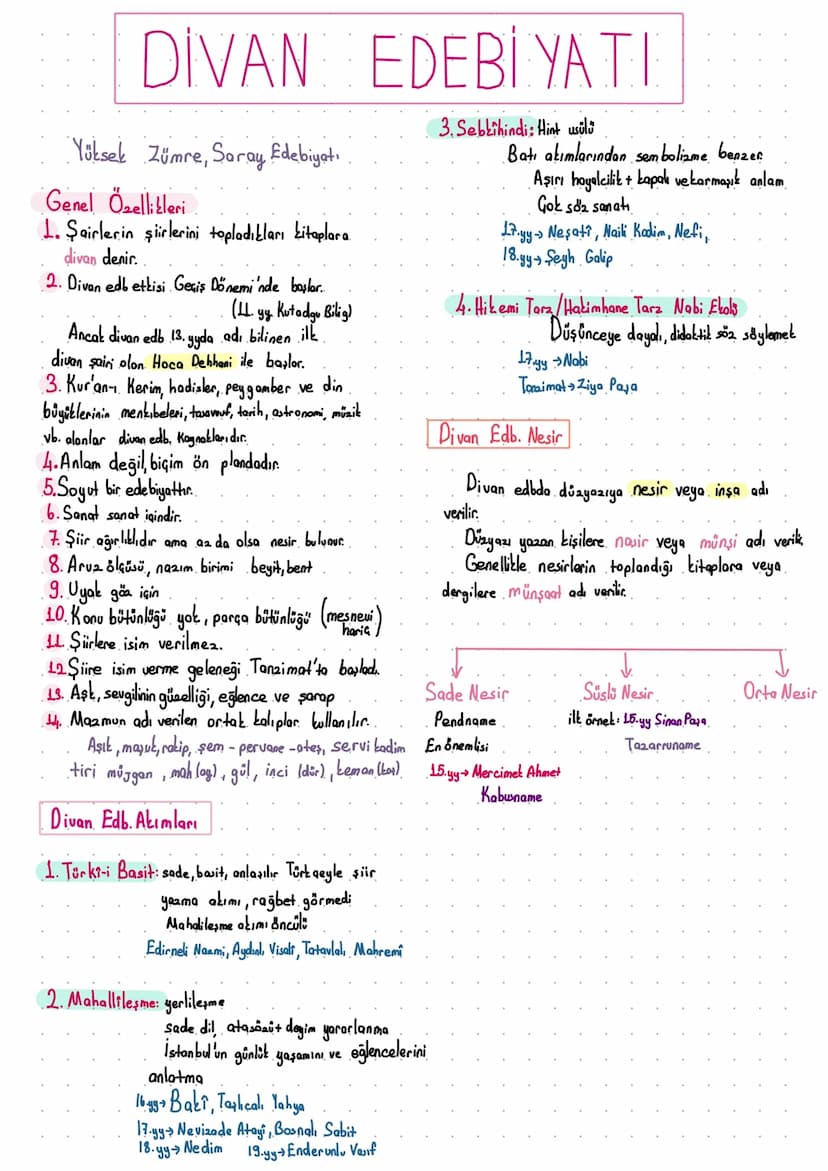 DİVAN EDEBİYATI
Yüksek Zümre, Saray Edebiyatı
Genel Özellikleri
1. Şairlerin şiirlerini topladıkları kitaplara
divan denir.
2. Divan edb etkisi Geçiş Dönemi'nde başlar.
(11. yy. Kutadgu Bilig)
Ancak divan edb 13. yyda adı bilinen ilk
divan şairi olan Hoca Dehhani ile başlar.
3. Kur'an-ı Kerim, hadisler, peygamber ve din
büyüklerinin menkıbeleri, tasavvuf, tarih, astronomi, müzik
vb. alanlar divan edb. kaynaklarıdır.
4. Anlam değil, biçim ön plandadır.
5. Soyut bir edebiyattır.
6. Sanat sanat içindir.
7. Şiir ağırlıklıdır ama az da olsa nesir bulunur.
8. Aruz ölçüsü, nazım birimi beyit, bent
9. Uyak göz için
10. Konu bütünlüğü yok, parça bütünlüğü (mesnevi hariç)
11. Şiirlere isim verilmez.
12. Şiire isim verme geleneği Tanzimat'ta başladı.
13. Aşk, sevgilinin güzelliği, eğlence ve şarap
14. Mazmun adı verilen ortak kalıplar kullanılır.
Aşık, maşuk, rakip, şem - pervane - ateş, servi kadim
tiri müjgan, mah (ay), gül, inci (dür), keman (kaş)
Divan Edb. Akımları
1. Türkî-i Basit: sade, basit, anlaşılır Türkçeyle şiir
yazma akımı, rağbet görmedi
Mahallileşme akımı öncülü
Edirneli Nazmi, Aydınlı Visali, Tatavlalı Mahremî
2. Mahallileşme: yerlileşme
sade dil, atasözü + deyim yararlanma
İstanbul'un günlük yaşamını ve eğlencelerini
anlatma
16.yy→ Bakî, Taşlıcalı Yahya
17.yy→ Nevizade Atayî, Bosnalı Sabit
18.yy→ Nedim 19.yy→ Enderunlu Vasıf
3. Sebkîhindi: Hint usülü
Batı akımlarından sembolizme benzer
Aşırı hayalcilik + kapalı ve karmaşık anlam
Çok söz sanatı
17.yy→ Neşatî, Naili Kadim, Nefi,
18.yy→ Şeyh Galip
4. Hikemi Tarz/Hakimhane Tarz Nabi Ekolü
Düşünceye dayalı, didaktik söz söylemek
17.yy→ Nabi
Tanzimat→ Ziya Paşa
Divan Edb. Nesir
Divan edbda düzyazıya nesir veya inşa adı
verilir.
Düzyazı yazan kişilere nasir veya münşi adı verilir.
Genellikle nesirlerin toplandığı kitaplara veya
dergilere münşaat adı verilir.
Sade Nesir Süslü Nesir Orta Nesir
Pendname ilk örnek: 15.yy Sinan Paşa
En önemlisi Tazarruname
15.yy→ Mercimek Ahmet
Kabusname